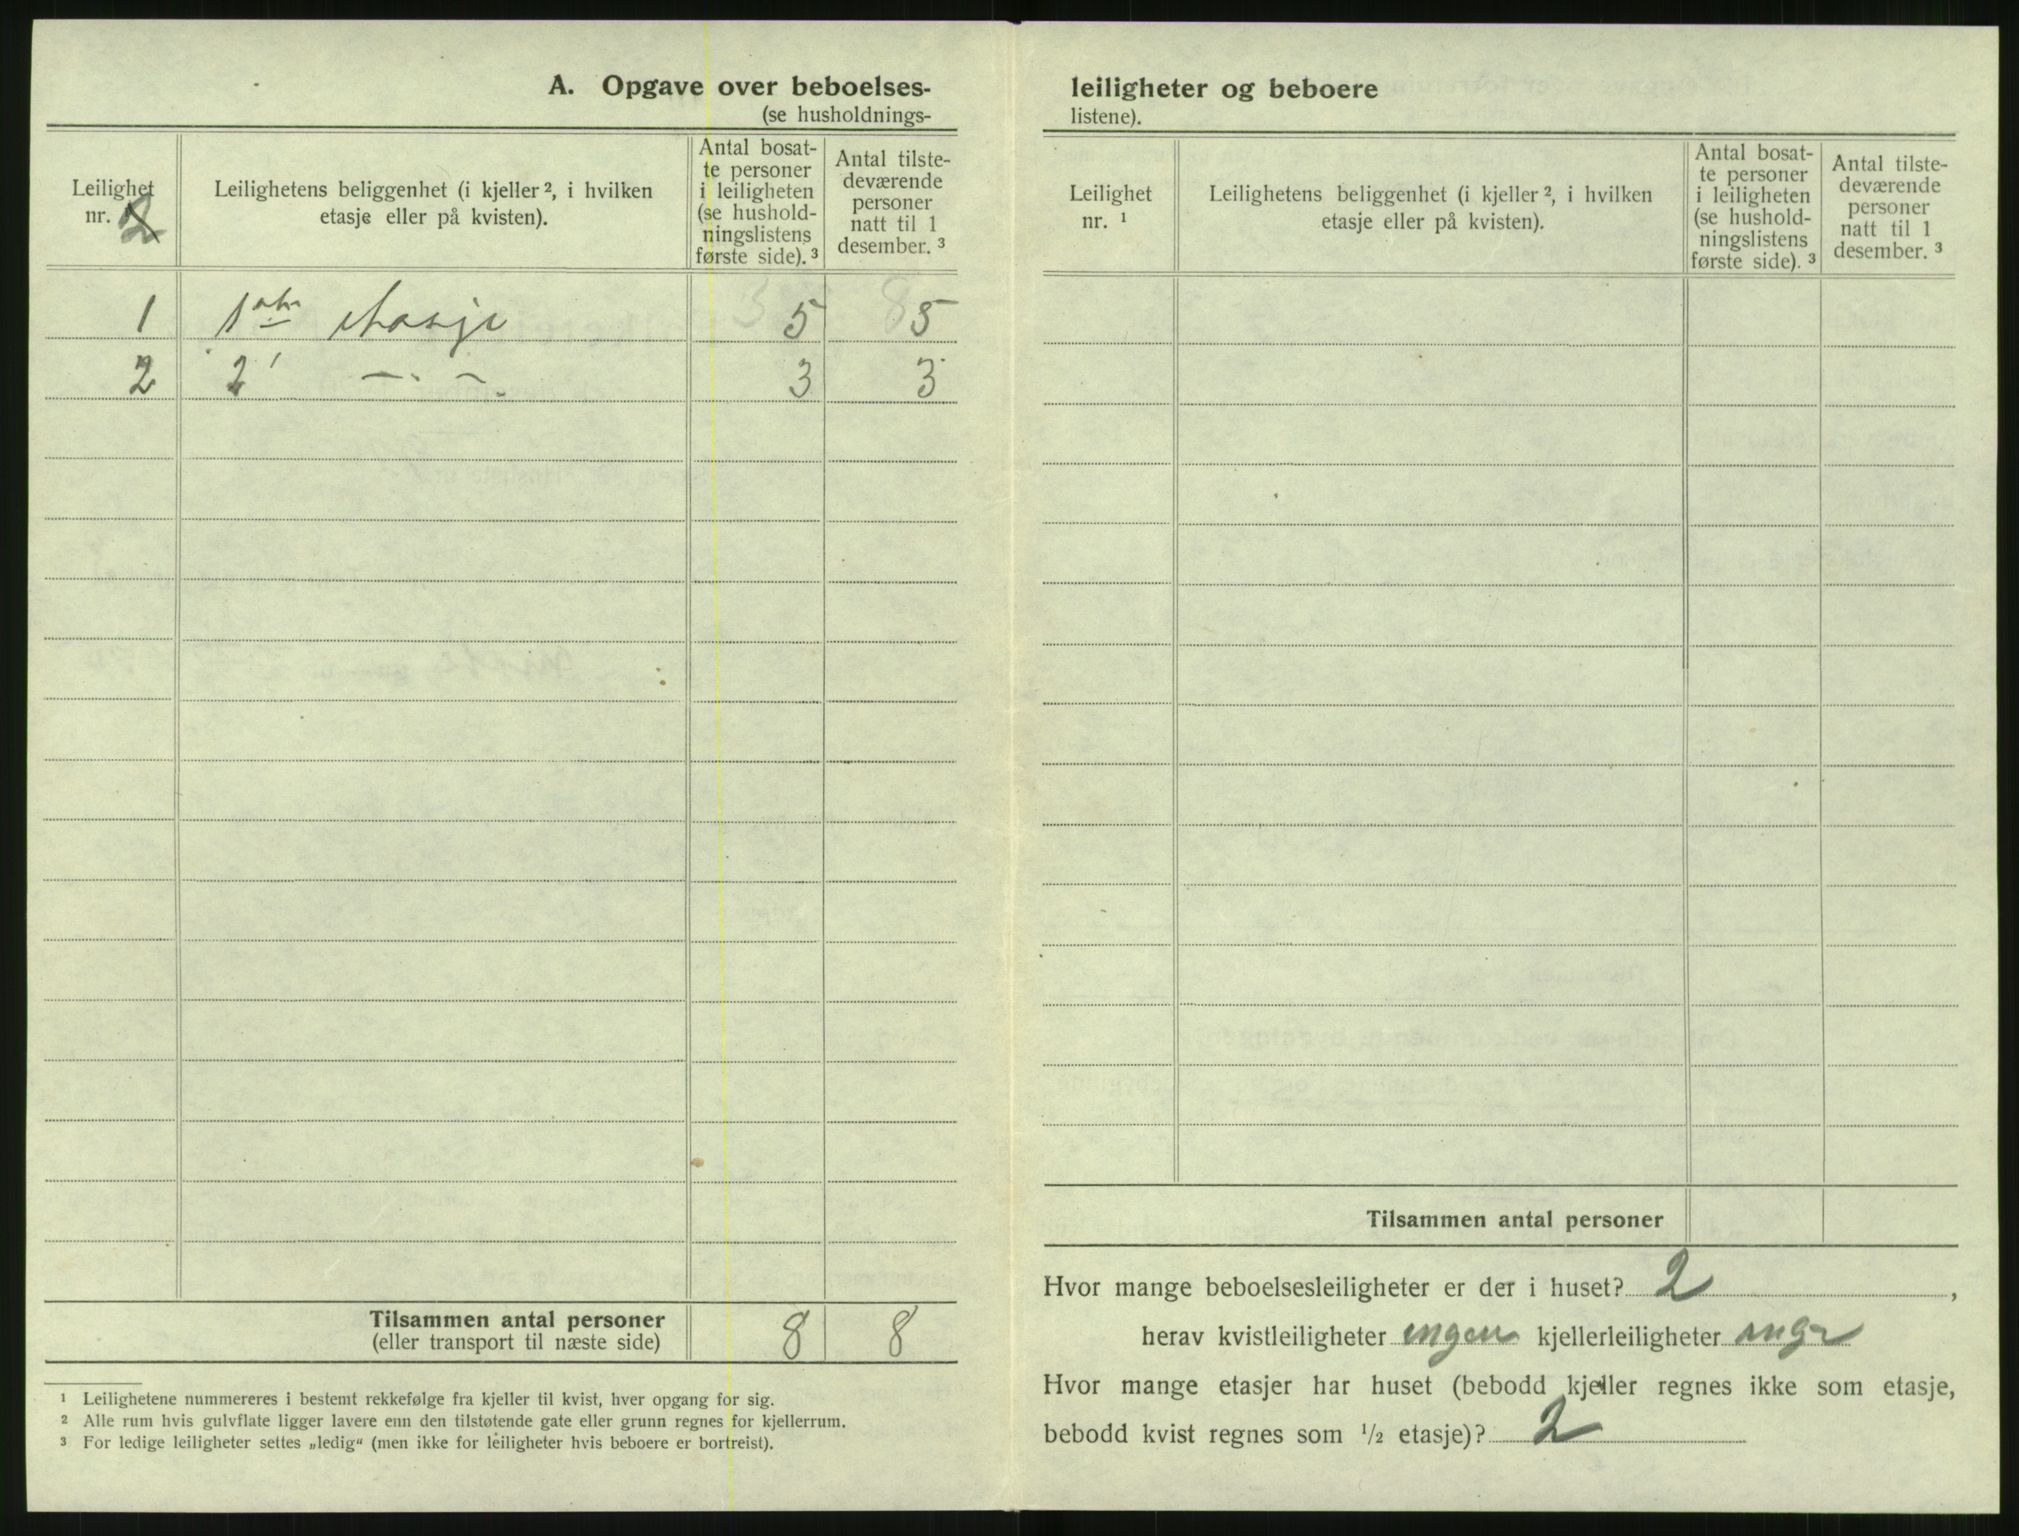 A. Opgave over beboelses-
(se husholdnings-
Leilighet
nr. 2
Leilighetens beliggenhet (i kjeller ², i hvilken
etasje eller på kvisten).
Antal bosat-
te personer
i leiligheten
(se hushold-
ningslistens
første side). ³
Antal tilste-
deværende
personer
natt til 1
desember. ³
1 1ste etasje 5 5
2 2' —·— 3 3
Tilsammen antal personer 8 8
(eller transport til næste side)
¹ Leilighetene nummereres i bestemt rekkefølge fra kjeller til kvist, hver opgang for sig.
² Alle rum hvis gulvflate ligger lavere enn den tilstøtende gate eller grunn regnes for kjellerrum.
³ For ledige leiligheter settes „ledig“ (men ikke for leiligheter hvis beboere er bortreist).
leiligheter og beboere
listene).
Leilighet
nr. ¹
Leilighetens beliggenhet (i kjeller ², i hvilken
etasje eller på kvisten).
Antal bosat-
te personer
i leiligheten
(se hushold-
ningslistens
første side). ³
Antal tilste-
deværende
personer
natt til 1
desember. ³
Tilsammen antal personer
Hvor mange beboelsesleiligheter er der i huset? 2,
herav kvistleiligheter ingen kjellerleiligheter
Hvor mange etasjer har huset (bebodd kjeller regnes ikke som etasje,
bebodd kvist regnes som ½ etasje)? 2